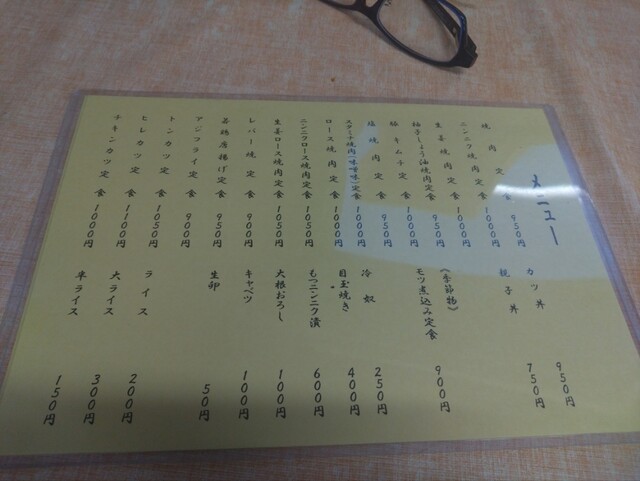 メニュー
焼肉定食 950円
ニンニク焼肉定食 1000円
生姜焼肉定食 1000円
柚子しょう油焼肉定食 950円
豚キムチ定食 1000円
塩焼肉定食 950円
スタミナ焼肉(味噌味)定食 1000円
ロース焼肉定食 1000円
ニンニクロース焼肉定食 1050円
生姜ロース焼肉定食 1050円
レバー焼定食 900円
若鶏唐揚げ定食 950円
アジフライ定食 900円
トンカツ定食 1050円
ヒレカツ定食 1100円
チキンカツ定食 1000円
カツ丼 950円
親子丼 750円
《季節物》
モツ煮込み定食 900円
冷奴 250円
目玉焼き 400円
もつニンニク漬 600円
大根おろし 100円
キャベツ 100円
生卵 50円
ライス 200円
大ライス 300円
半ライス 150円